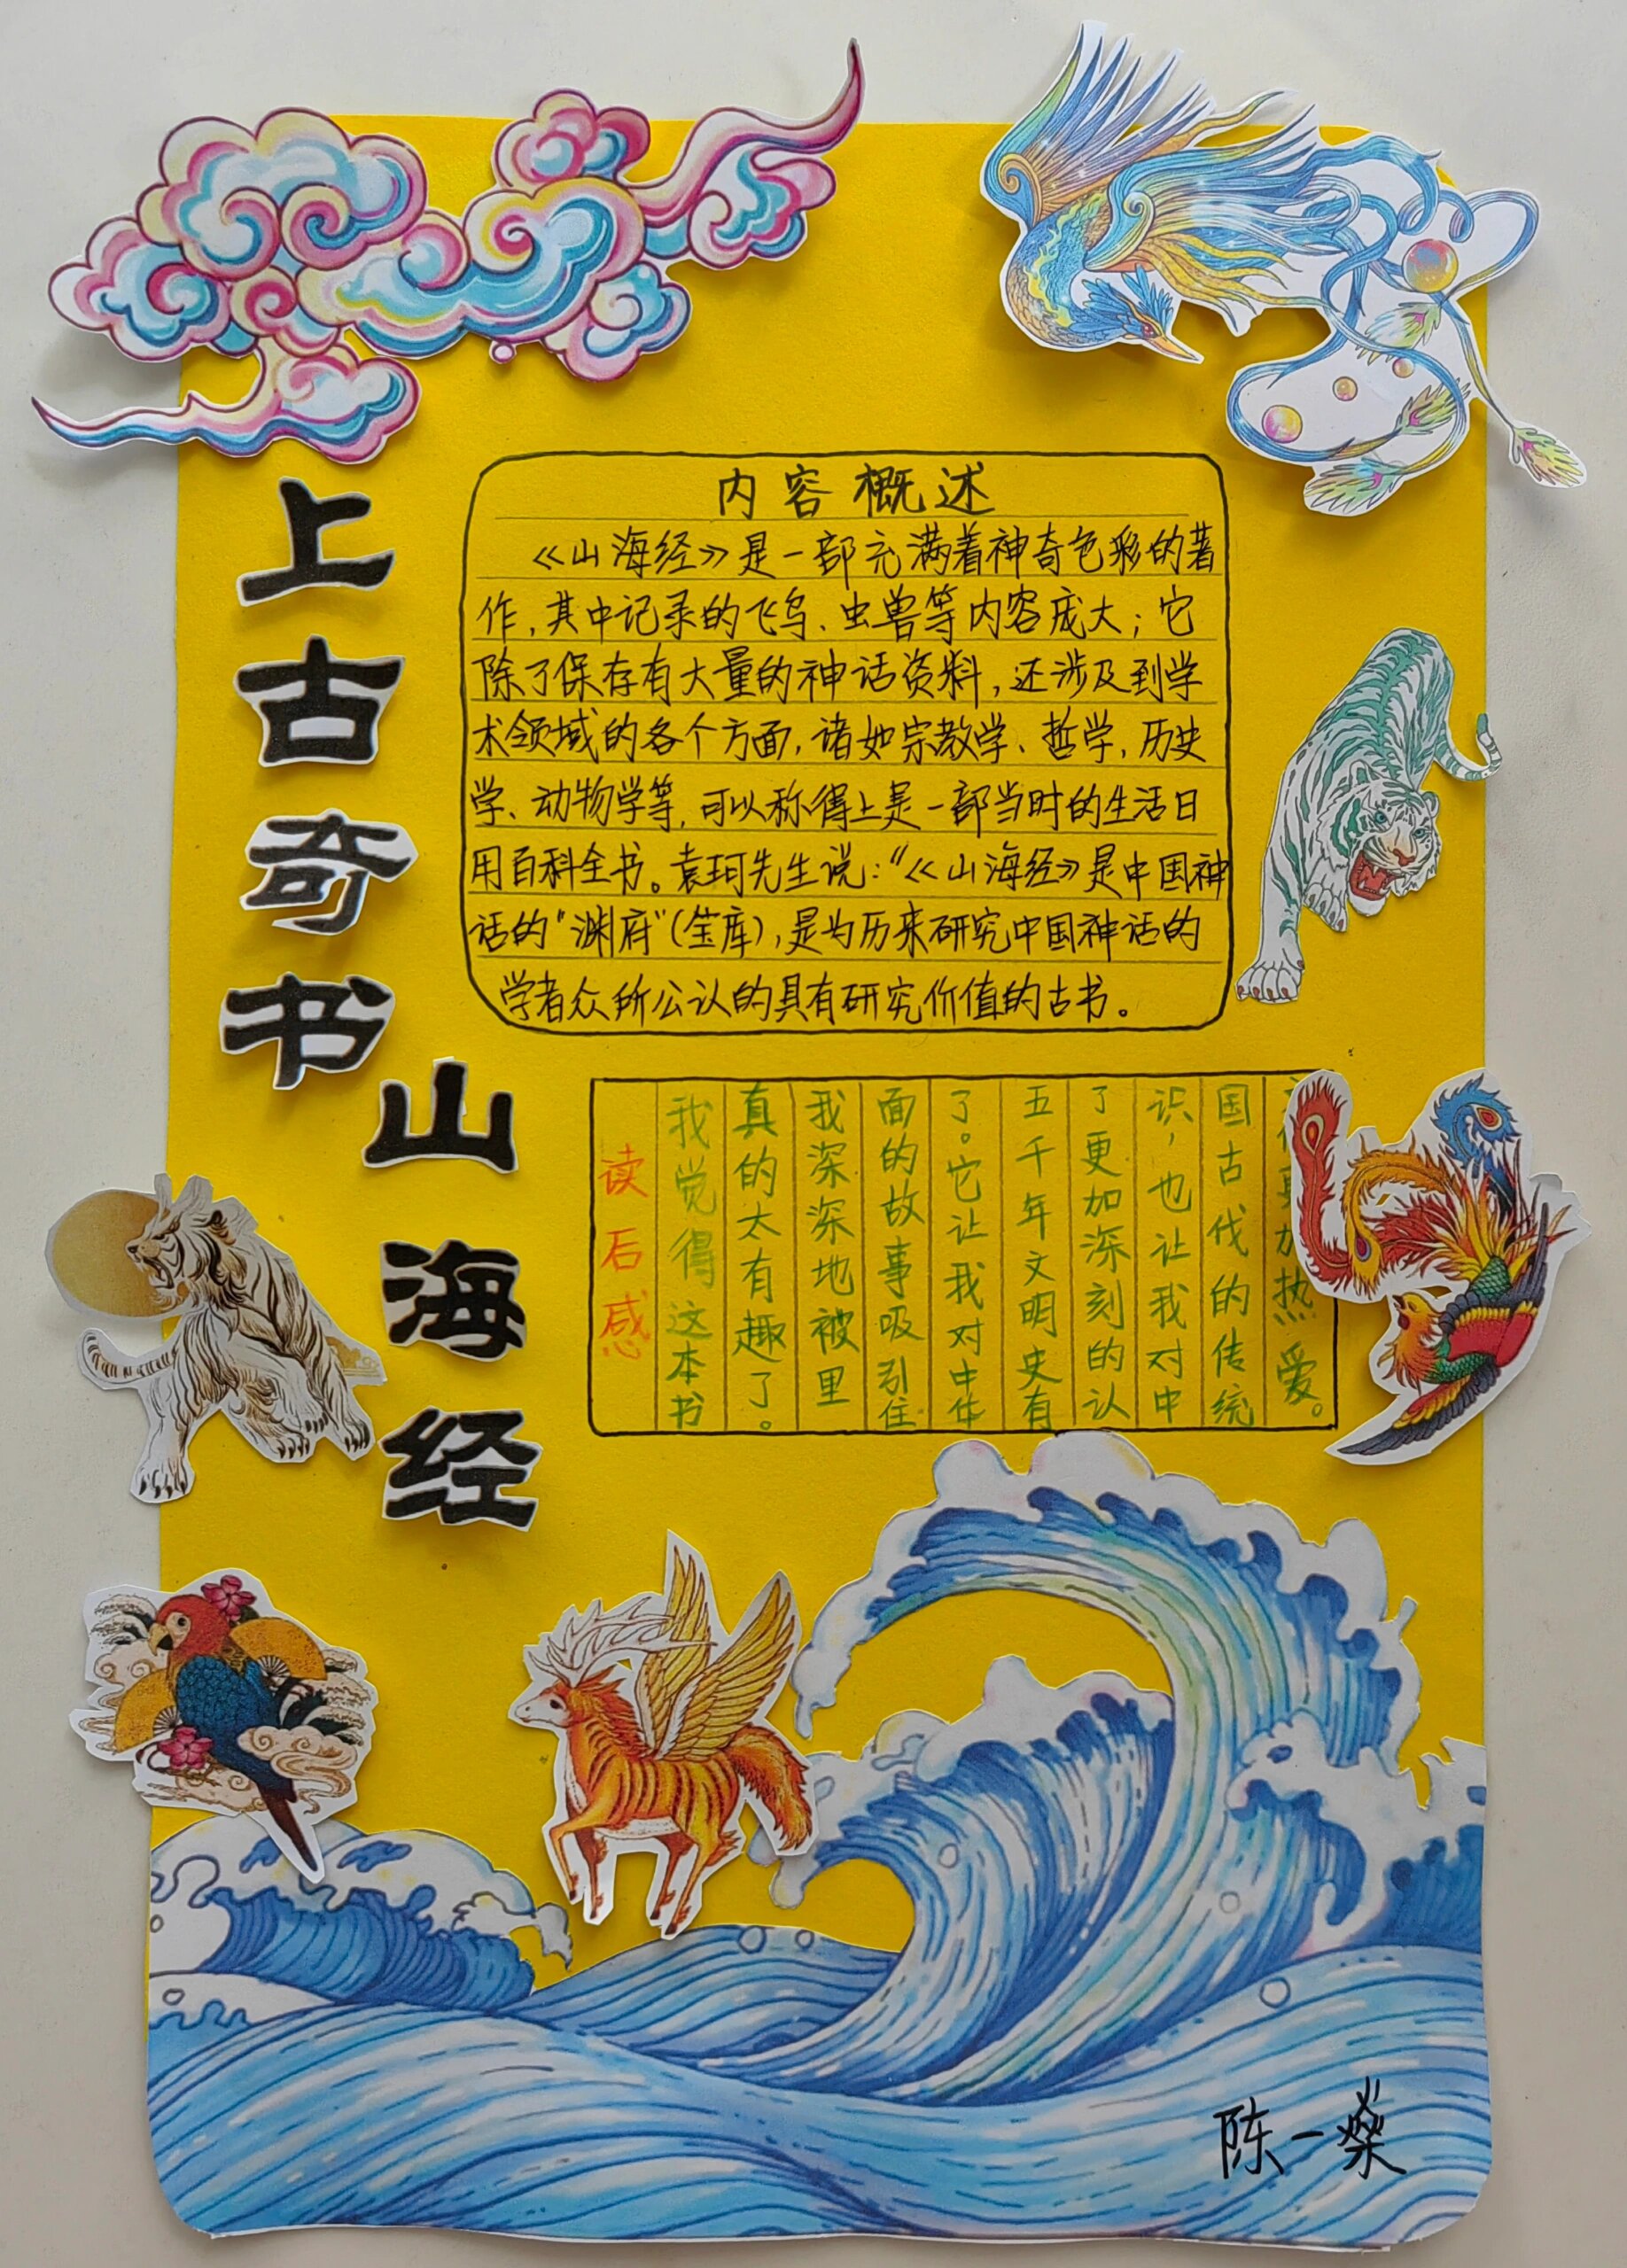 上古奇书
山海经
内容概述
《山海经》是一部充满着神奇色彩的著
作，其中记录的飞鸟、虫兽等内容庞大；它
除了保存有大量的神话资料，还涉及到学
术领域的各个方面，诸如宗教学、哲学，历史
学、动物学等，可以称得上是一部当时的生活日
用百科全书。袁珂先生说：“《山海经》是中国神
话的“渊府”（宝库），是为历来研究中国神话的
学者众所公认的具有研究价值的古书。
读后感
我觉得这本书
真的太有趣了。
我深深地被里
面的故事吸引住
了。它让我对中华
五千年文明史有
了更加深刻的认
识，也让我对中
国古代的传统
热爱。
陈一燊